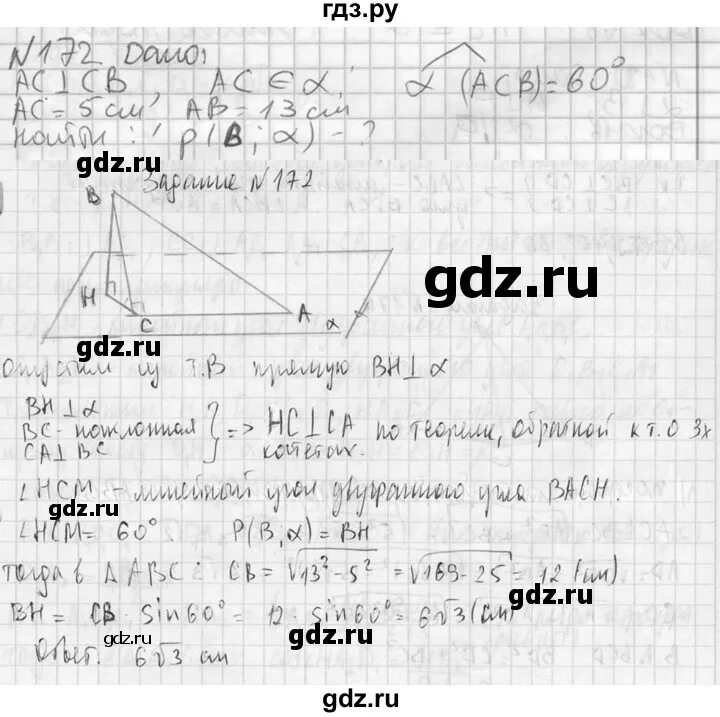 гдз.ру
N172 Дано:
AC⊥CB, AC ∈ α, α (ACB)=60°
AC = 5 см, AB = 13 см
Найти: ρ(B; α) - ?
gdz.ru
Задание N172
B
gdz.ru
H
C
A
α
gdz.ru
опустим из т.B прямую BH⊥α
BH⊥α
BC-наклонная
CA⊥BC
=> HC⊥CA по теореме, обратной к т. о 3х
∠HCM - линейный угол двугранного угла BACH.
gdz.ru
∠HCM = 60°. P(B,α) = BH
тогда в ΔABC: CB = √13²-5² = √169-25 = 12 (см)
gdz.ru
BH = CB · sin60° = 12 · sin60° = 6√3 (см)
gdz.ru
gdz.ru
Ответ. 6√3 см
gdz.ru